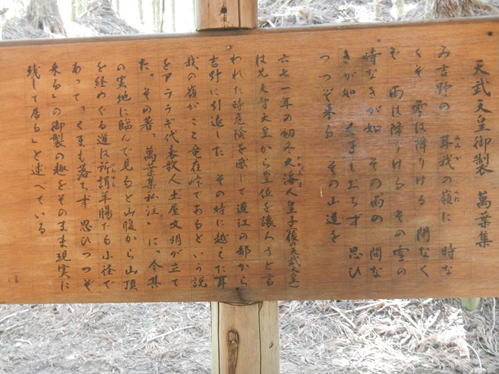 天武天皇御製 萬葉集
み吉野の 耳我の嶺に 時な
くそ 雪は降りける 間なく
そ 雨は降りける その雪の
時なきが如 その雨の 間な
きが如 くまもおちず 思ひ
つつぞ来る その山道を
六七一年の初冬大海人皇子(後の天武天皇)
は兄天智天皇から皇位を譲ろうと
われた時危険を感じて近江の都から
吉野に引返した その時に越えた耳
我の嶺がここ竜在峠であるという説
をアララギ代表歌人土屋文明が立て
た。その著「萬葉集私注」に、「今其
の実地に臨んで見ると山腹から山頂
を経めぐる道は所謂羊腸でも小径で
あって、くまも落ちず 思ひつつぞ
来る」の御製の趣をそのまま現実に
残して居る」と述べている